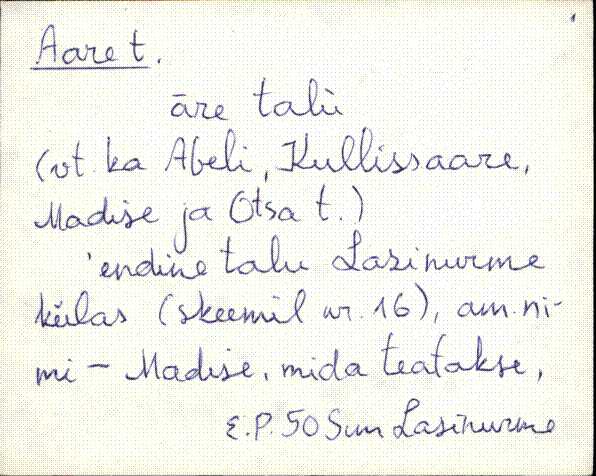 1
Aare t.
āre talù
(vt. ka Abeli, Kullissaare,
Madise ja Otsa t.)
'endine talu Lasinurme
külas (skeemil nr. 16), am. ni-
mi - Madise, mida teatakse,
E.P. 50 Sim Lasinurme